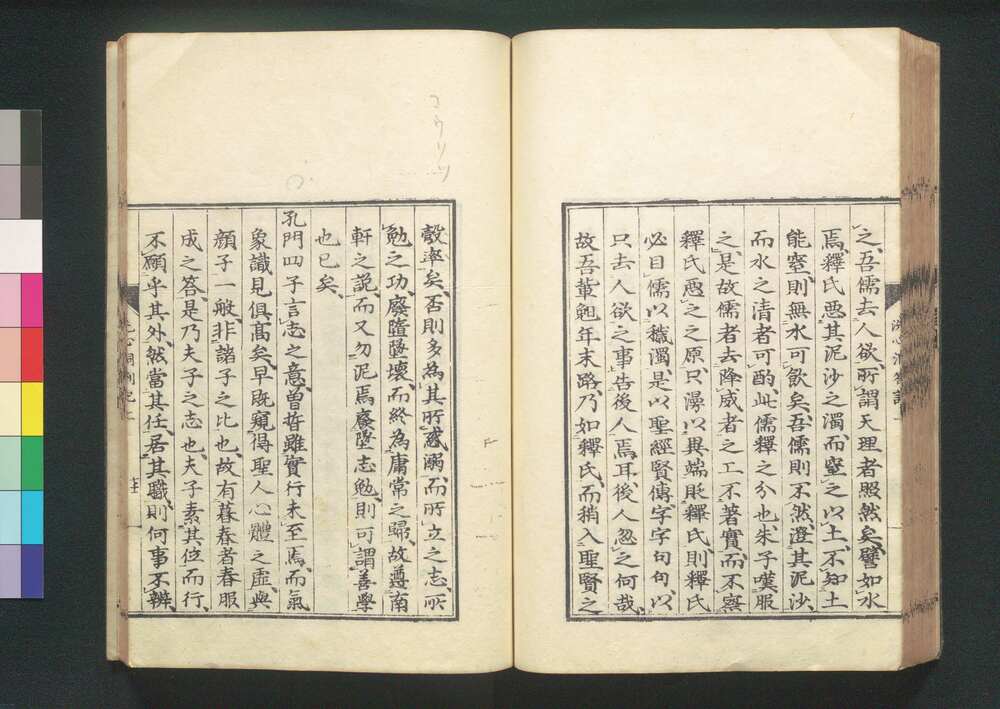 之、吾儒去人欲、所謂天理者照然矣、譬如水
焉、釋氏惡其泥沙之濁、而窒之以土、不知土
能窒、則無水可飲矣、吾儒則不然、澄其泥沙、
而水之清者可酌、此儒釋之分也、朱子嘆服
之、是故儒者去降威者之工、不著實、而不察
釋氏惡之之原、只漫以異端貶釋氏、則釋氏
必目儒以穢濁、是以聖經賢傳、字字句句、以
只去人欲之事、告後人焉耳、後人忽之何哉、
故吾輩年末路、乃如釋氏、而稍入聖賢之
彀率矣、否則多為其所惑溺、而所立之志、所
勉之功、廢墮墜壞、而終為庸常之歸、故遵南
軒之説、而又勿泥焉、廢墜志勉、則可謂善學
也已矣、
孔門四子言志之意、曽晳雖實行未至焉、而氣
象識見俱髙矣、早既窺得聖人心體之虛、與
顔子一般、非諸子之比也、故有暮春者春服
成之答、是乃夫子之志也、夫子素其位而行、
不願乎其外、然當其任、居其職、則何事不辨、
洗心洞箚記上
コウリツ